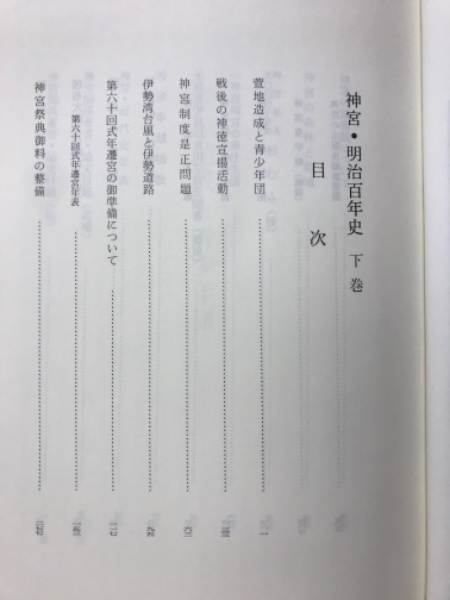 神宮・明治百年史 下巻
目次
萱地造成と青少年団
戦後の神徳宣揚活動
神宮制度是正問題
伊勢湾台風と伊勢道路
第六十回式年遷宮の御準備について
第六十回式年遷宮年表
神宮祭典御料の整備